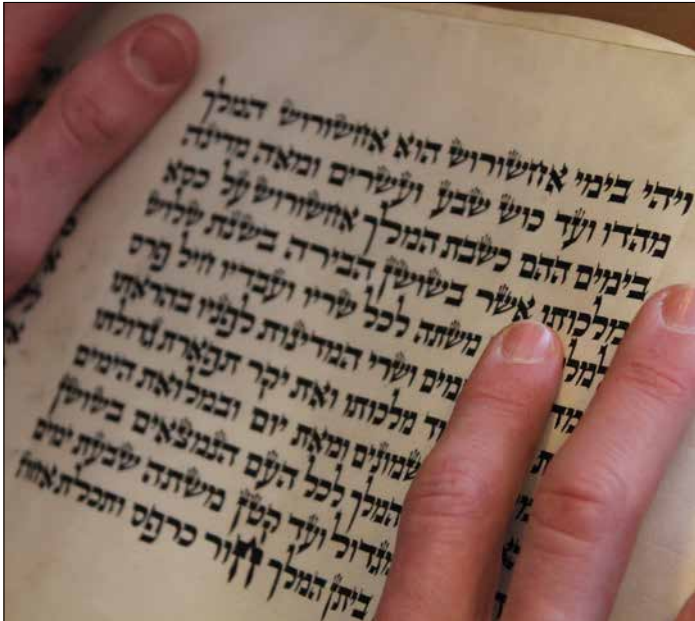 ויהי בימי אחשורוש הוא אחשורוש המלך
מהדו ועד כוש שבע ועשרים ומאה מדינה
בימים ההם כשבת המלך אחשורוש על כסא
מלכותו אשר בשושן הבירה בשנת שלוש
משתה לכל שריו ועבדיו חיל פרס
ושרי המדינות לפניו בהראתו
מלכותו ואת יקר תפארת גדולתו
שמונים ומאת יום ובמלואת הימים
המלך לכל העם הנמצאים בשושן
ועד קטן משתה שבעת ימים
ביתן המלך חור כרפס ותכלת אחוז